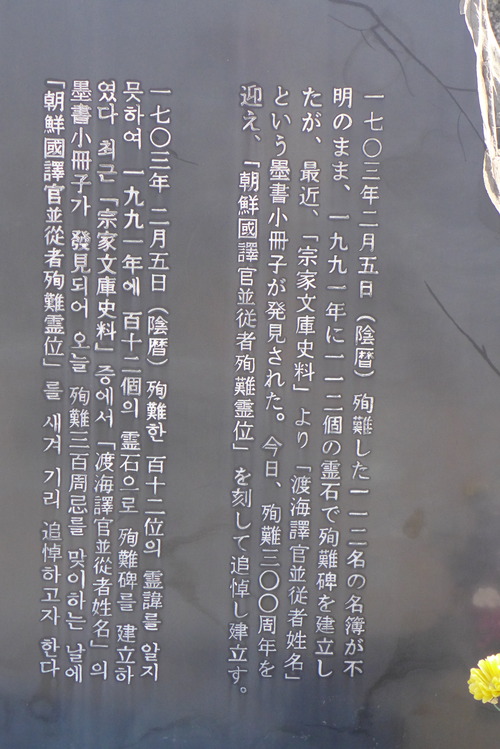 一七〇三年二月五日（陰暦）殉難した一一二名の名簿が不
明のまま、一九九一年に一一二個の霊石で殉難碑を建立し
たが、最近、「宗家文庫史料」より「渡海譯官並従者姓名」
という墨書小冊子が発見された。今日、殉難三〇〇周年を
迎え、「朝鮮國譯官並従者殉難霊位」を刻して追悼し建立す。
一七〇三年 二月五日（陰曆）殉難한 百十二位의 靈諱를 알지
못하여 一九九一年에 百十二個의 靈石으로 殉難碑를 建立하
였다 최근「宗家文庫史料」중에서「渡海譯官並從者姓名」의
墨書小冊子가 發見되어 오늘 殉難三百周忌를 맞이하는 날에
「朝鮮國譯官並從者殉難靈位」를 새겨 기리 追悼하고자 한다